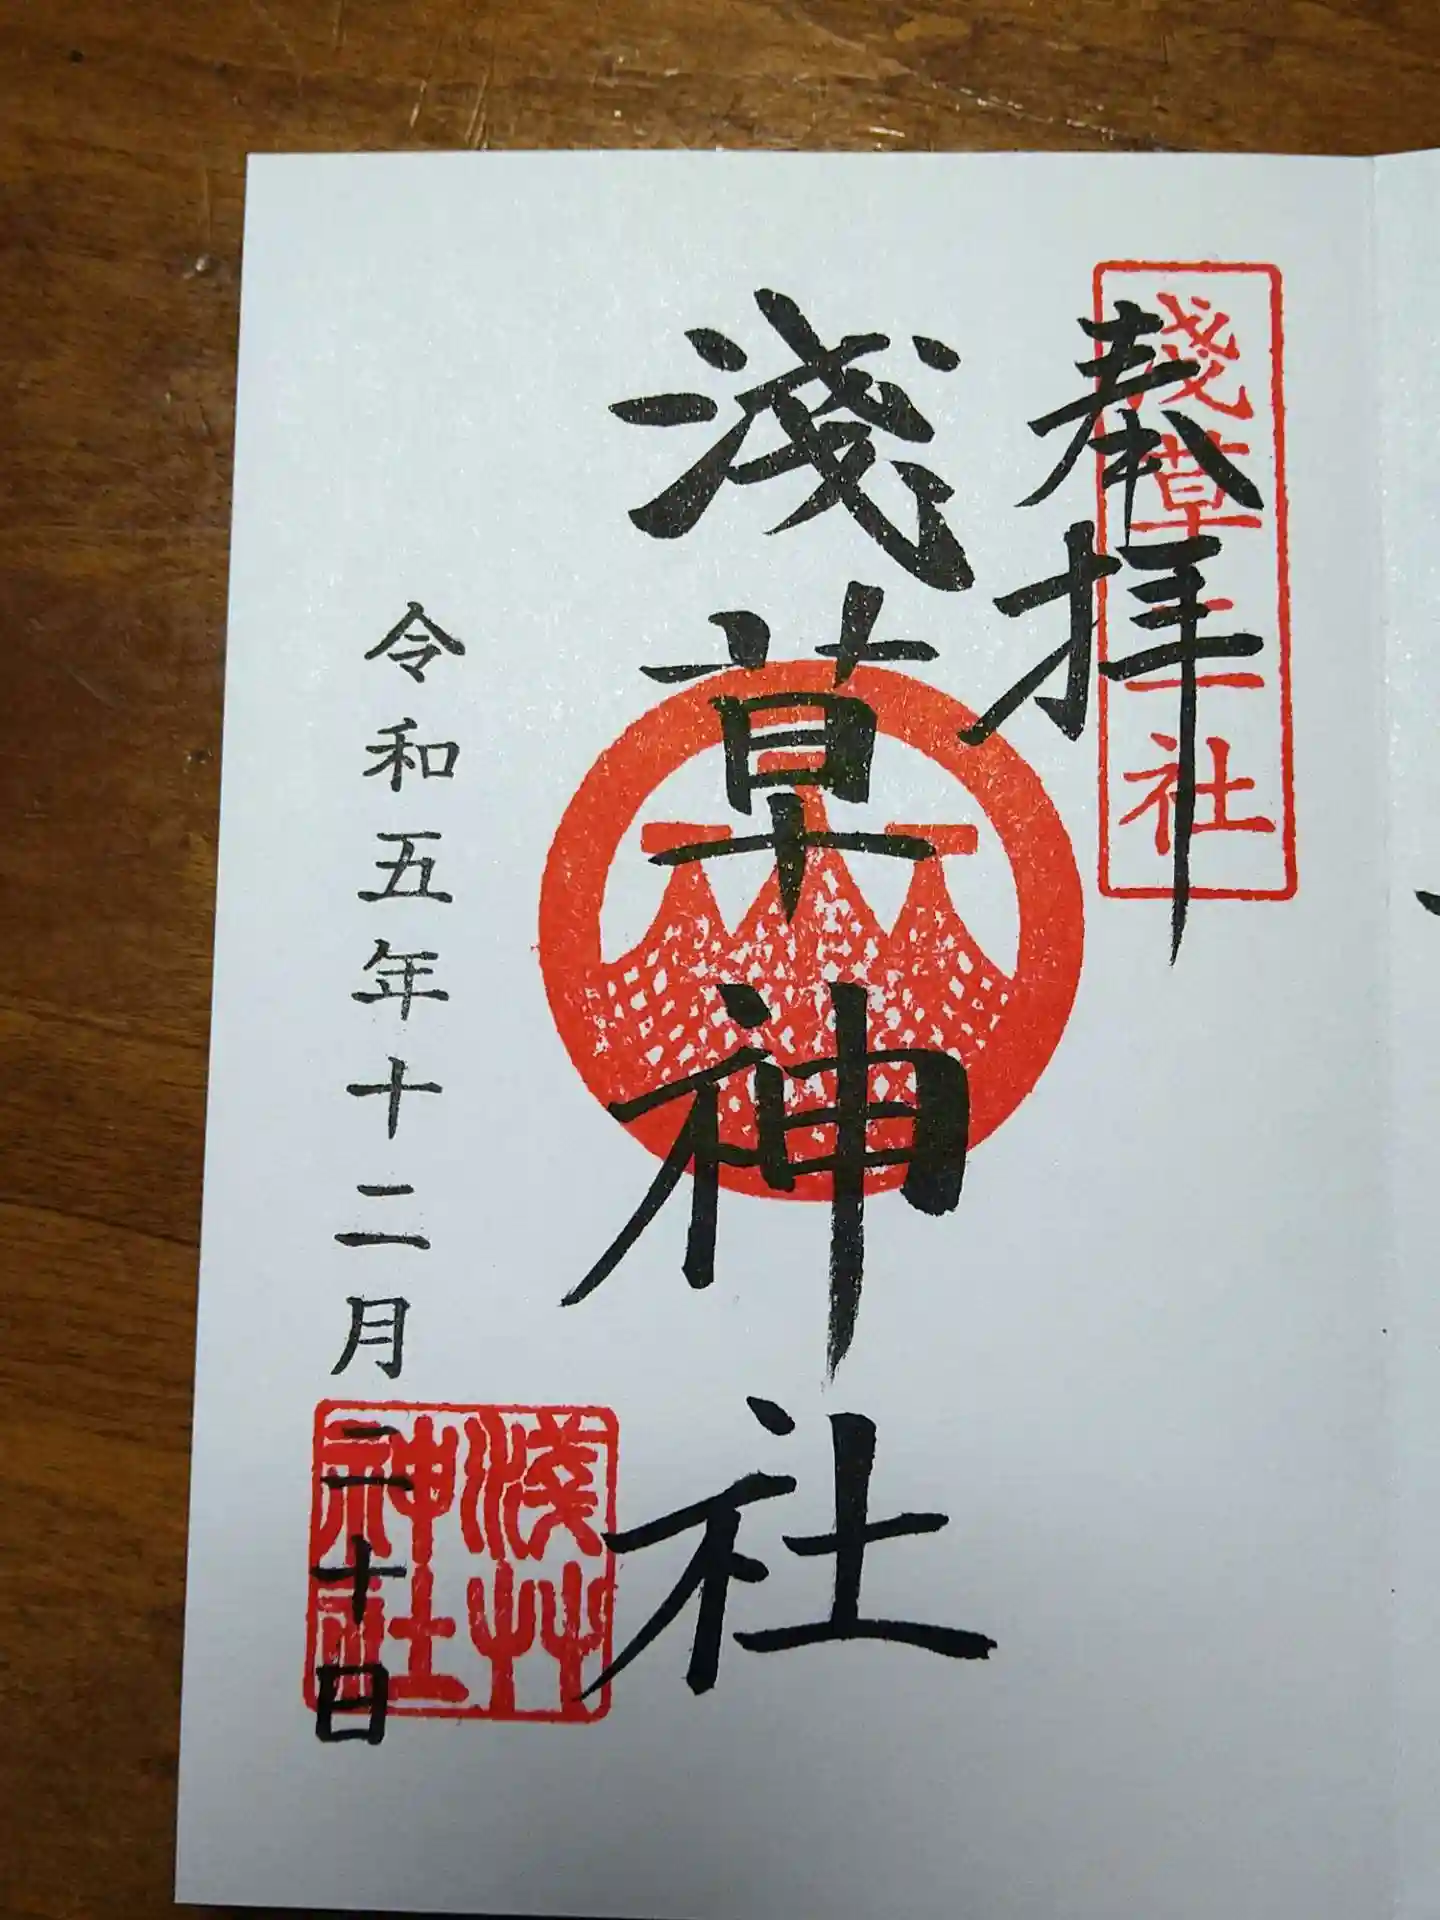 奉拝
淺草三社
淺草神社
令和五年十二月二十日
淺艸
神社